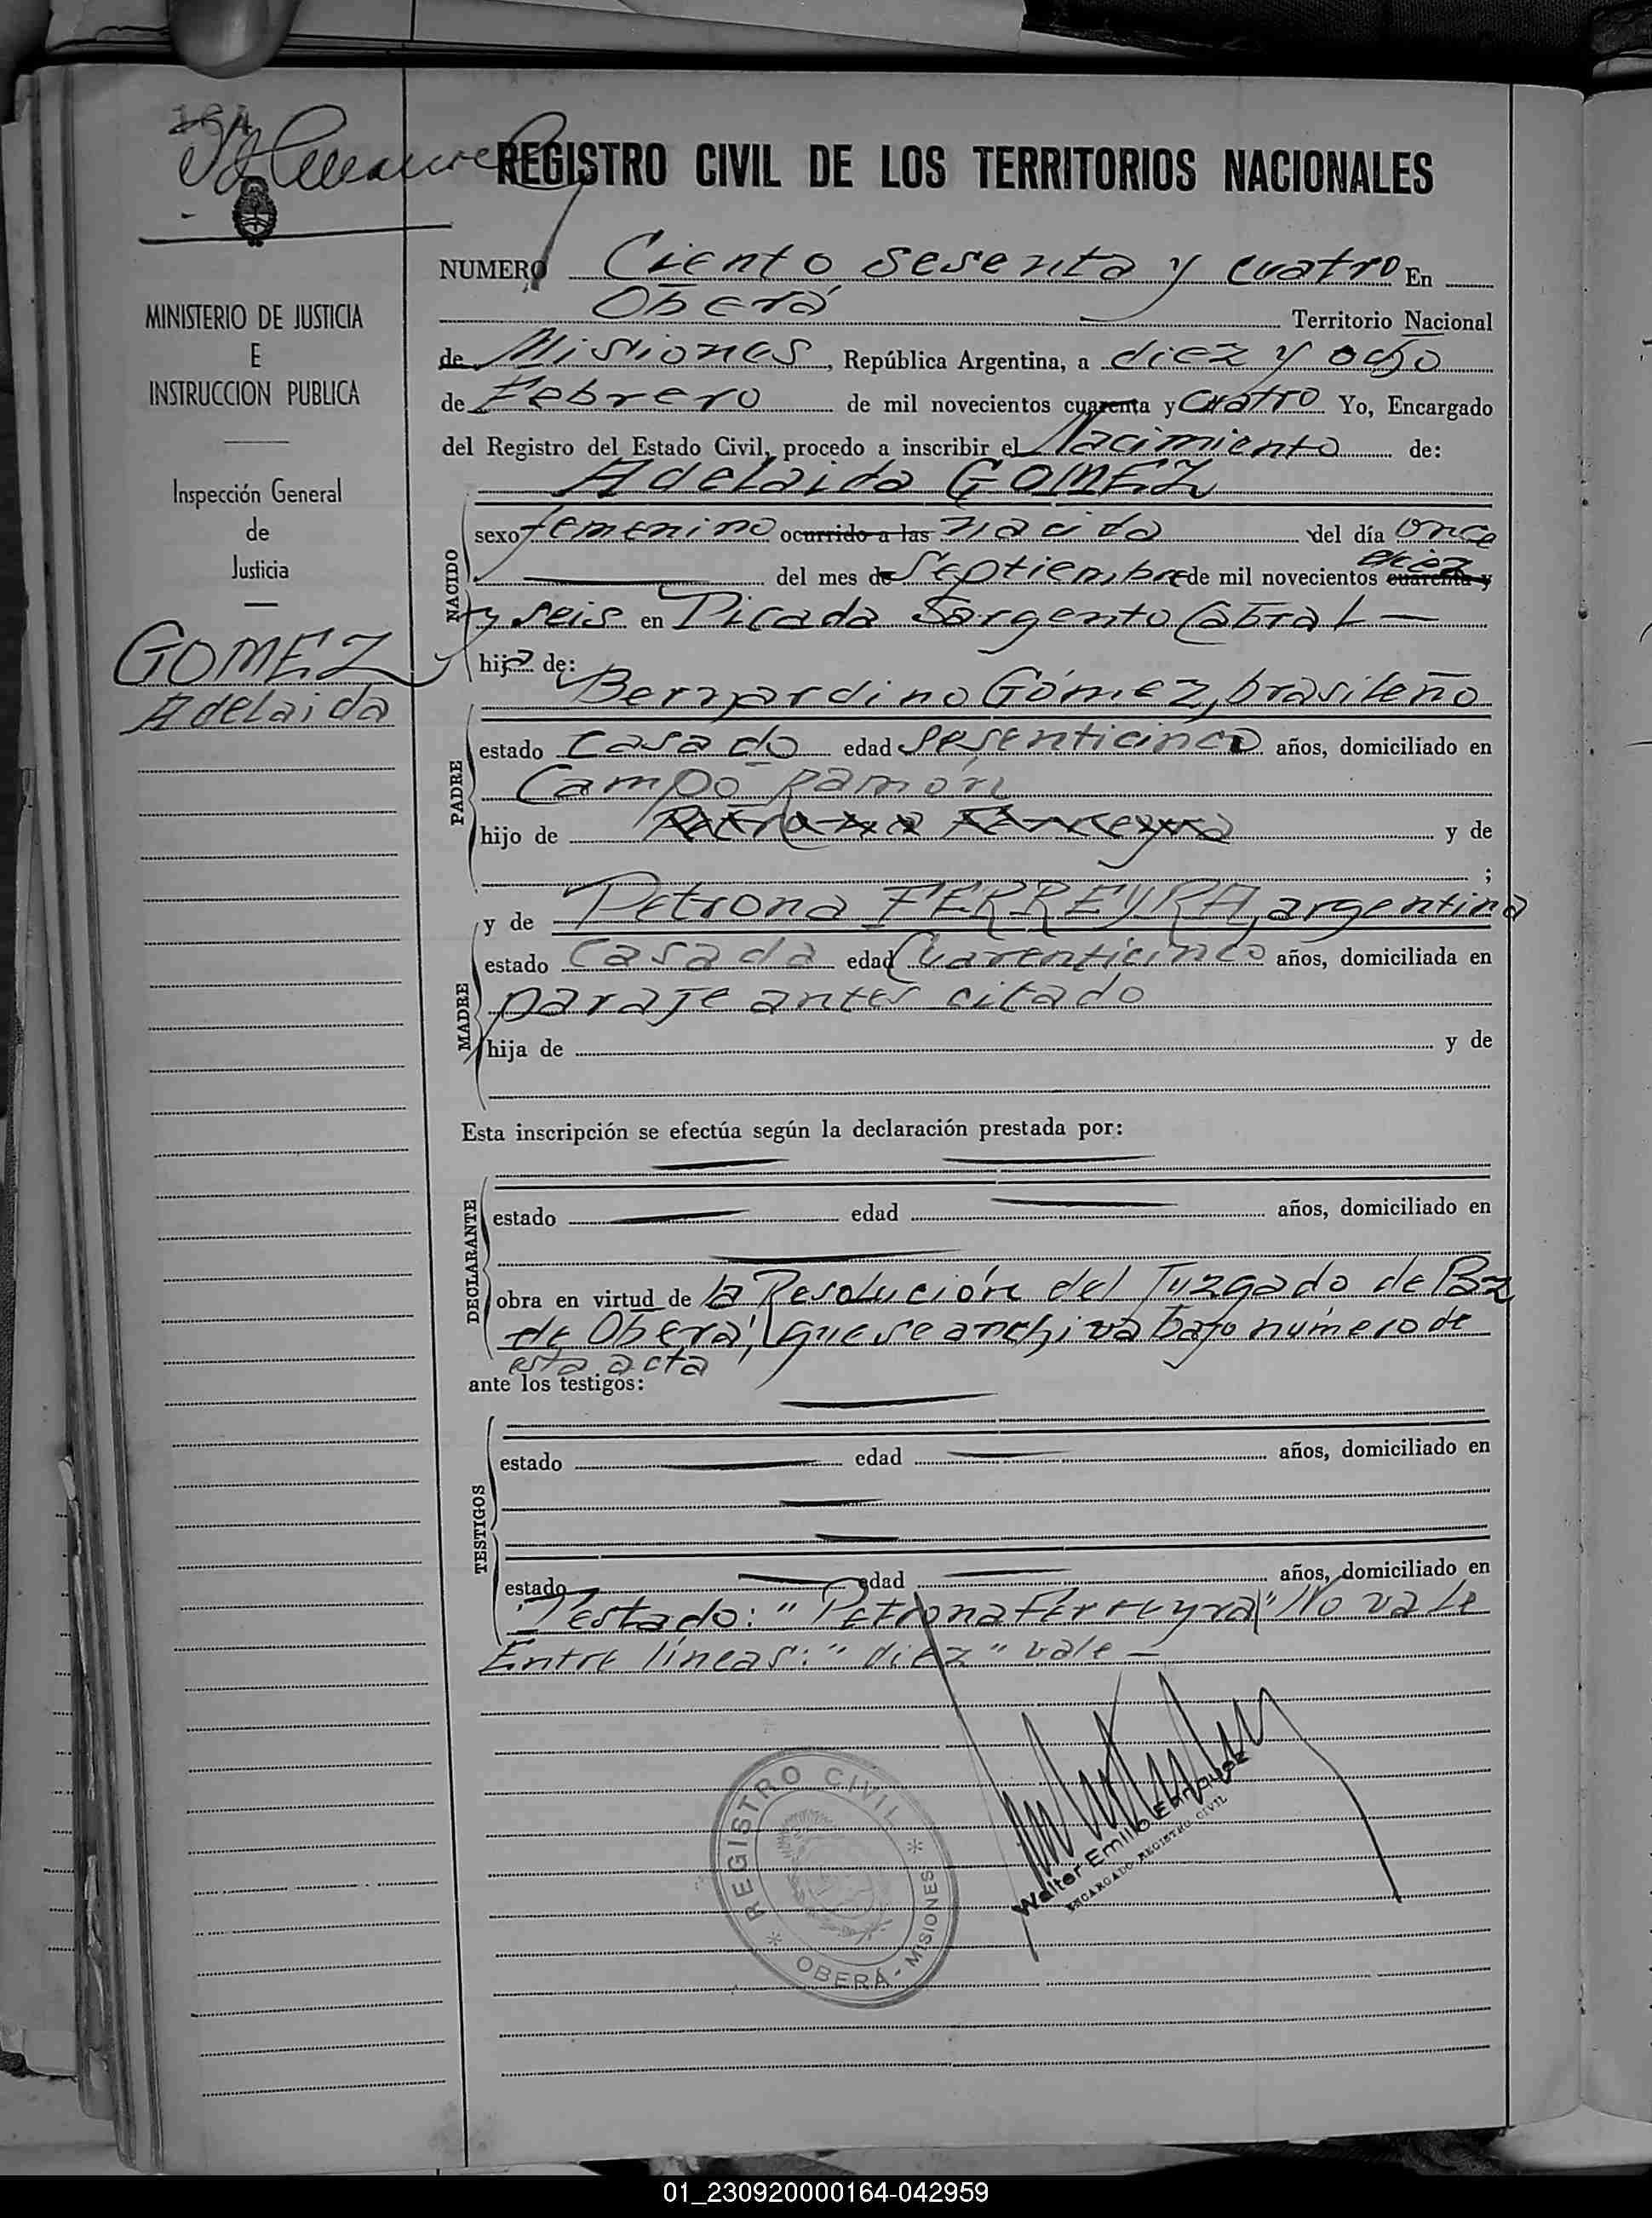 164
REGISTRO CIVIL DE LOS TERRITORIOS NACIONALES
MINISTERIO DE JUSTICIA
E
INSTRUCCION PUBLICA
Inspección General
de
Justicia
GOMEZ
Adelaida
NUMERO Ciento sesenta y cuatro En
Oberá Territorio Nacional
de Misiones, República Argentina, a diez y ocho
de Febrero de mil novecientos cuarenta y cuatro Yo, Encargado
del Registro del Estado Civil, procedo a inscribir el Nacimiento de:
Adelaida GOMEZ
NACIDO
sexo femenino ocurrido a las nacida del día once
diez
del mes de Septiembre de mil novecientos cuarenta y
y seis en Picada Sargento Cabral —
hija de:
Bernardino Gómez, brasileño
PADRE
estado casado edad sesenticinco años, domiciliado en
Campo Ramón
hijo de Petrona Ferreyra y de
;
y de Petrona FERREYRA, argentina
MADRE
estado casada edad Cuarenticinco años, domiciliada en
paraje antes citado
hija de y de
Esta inscripción se efectúa según la declaración prestada por:
DECLARANTE
estado edad años, domiciliado en
obra en virtud de la Resolución del Juzgado de Paz
de Oberá, que se archiva bajo número de
esta acta
ante los testigos:
TESTIGOS
estado edad años, domiciliado en
estado edad años, domiciliado en
Testado: "Petrona Ferreyra" No vale
Entre líneas: "diez" vale —
REGISTRO CIVIL
OBERÁ - MISIONES
Walter Emilio
ENCARGADO REGISTRO CIVIL
01_230920000164-042959